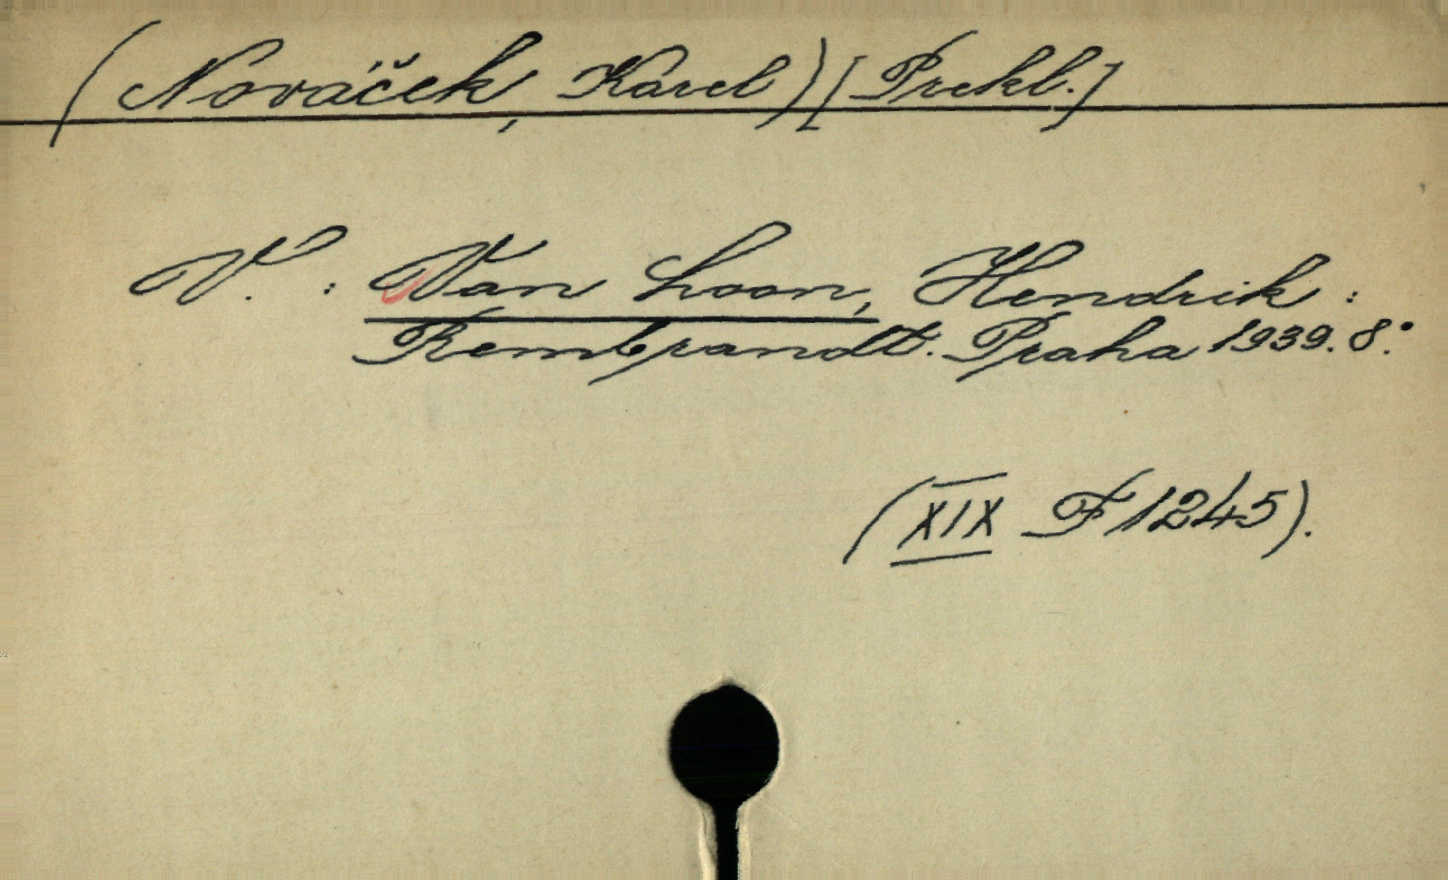 (Nováček, Karel) [Prekl.]
V. : Van Loon, Hendrik :
Rembrandt. Praha 1939. 8.°
(XIX F 1245).